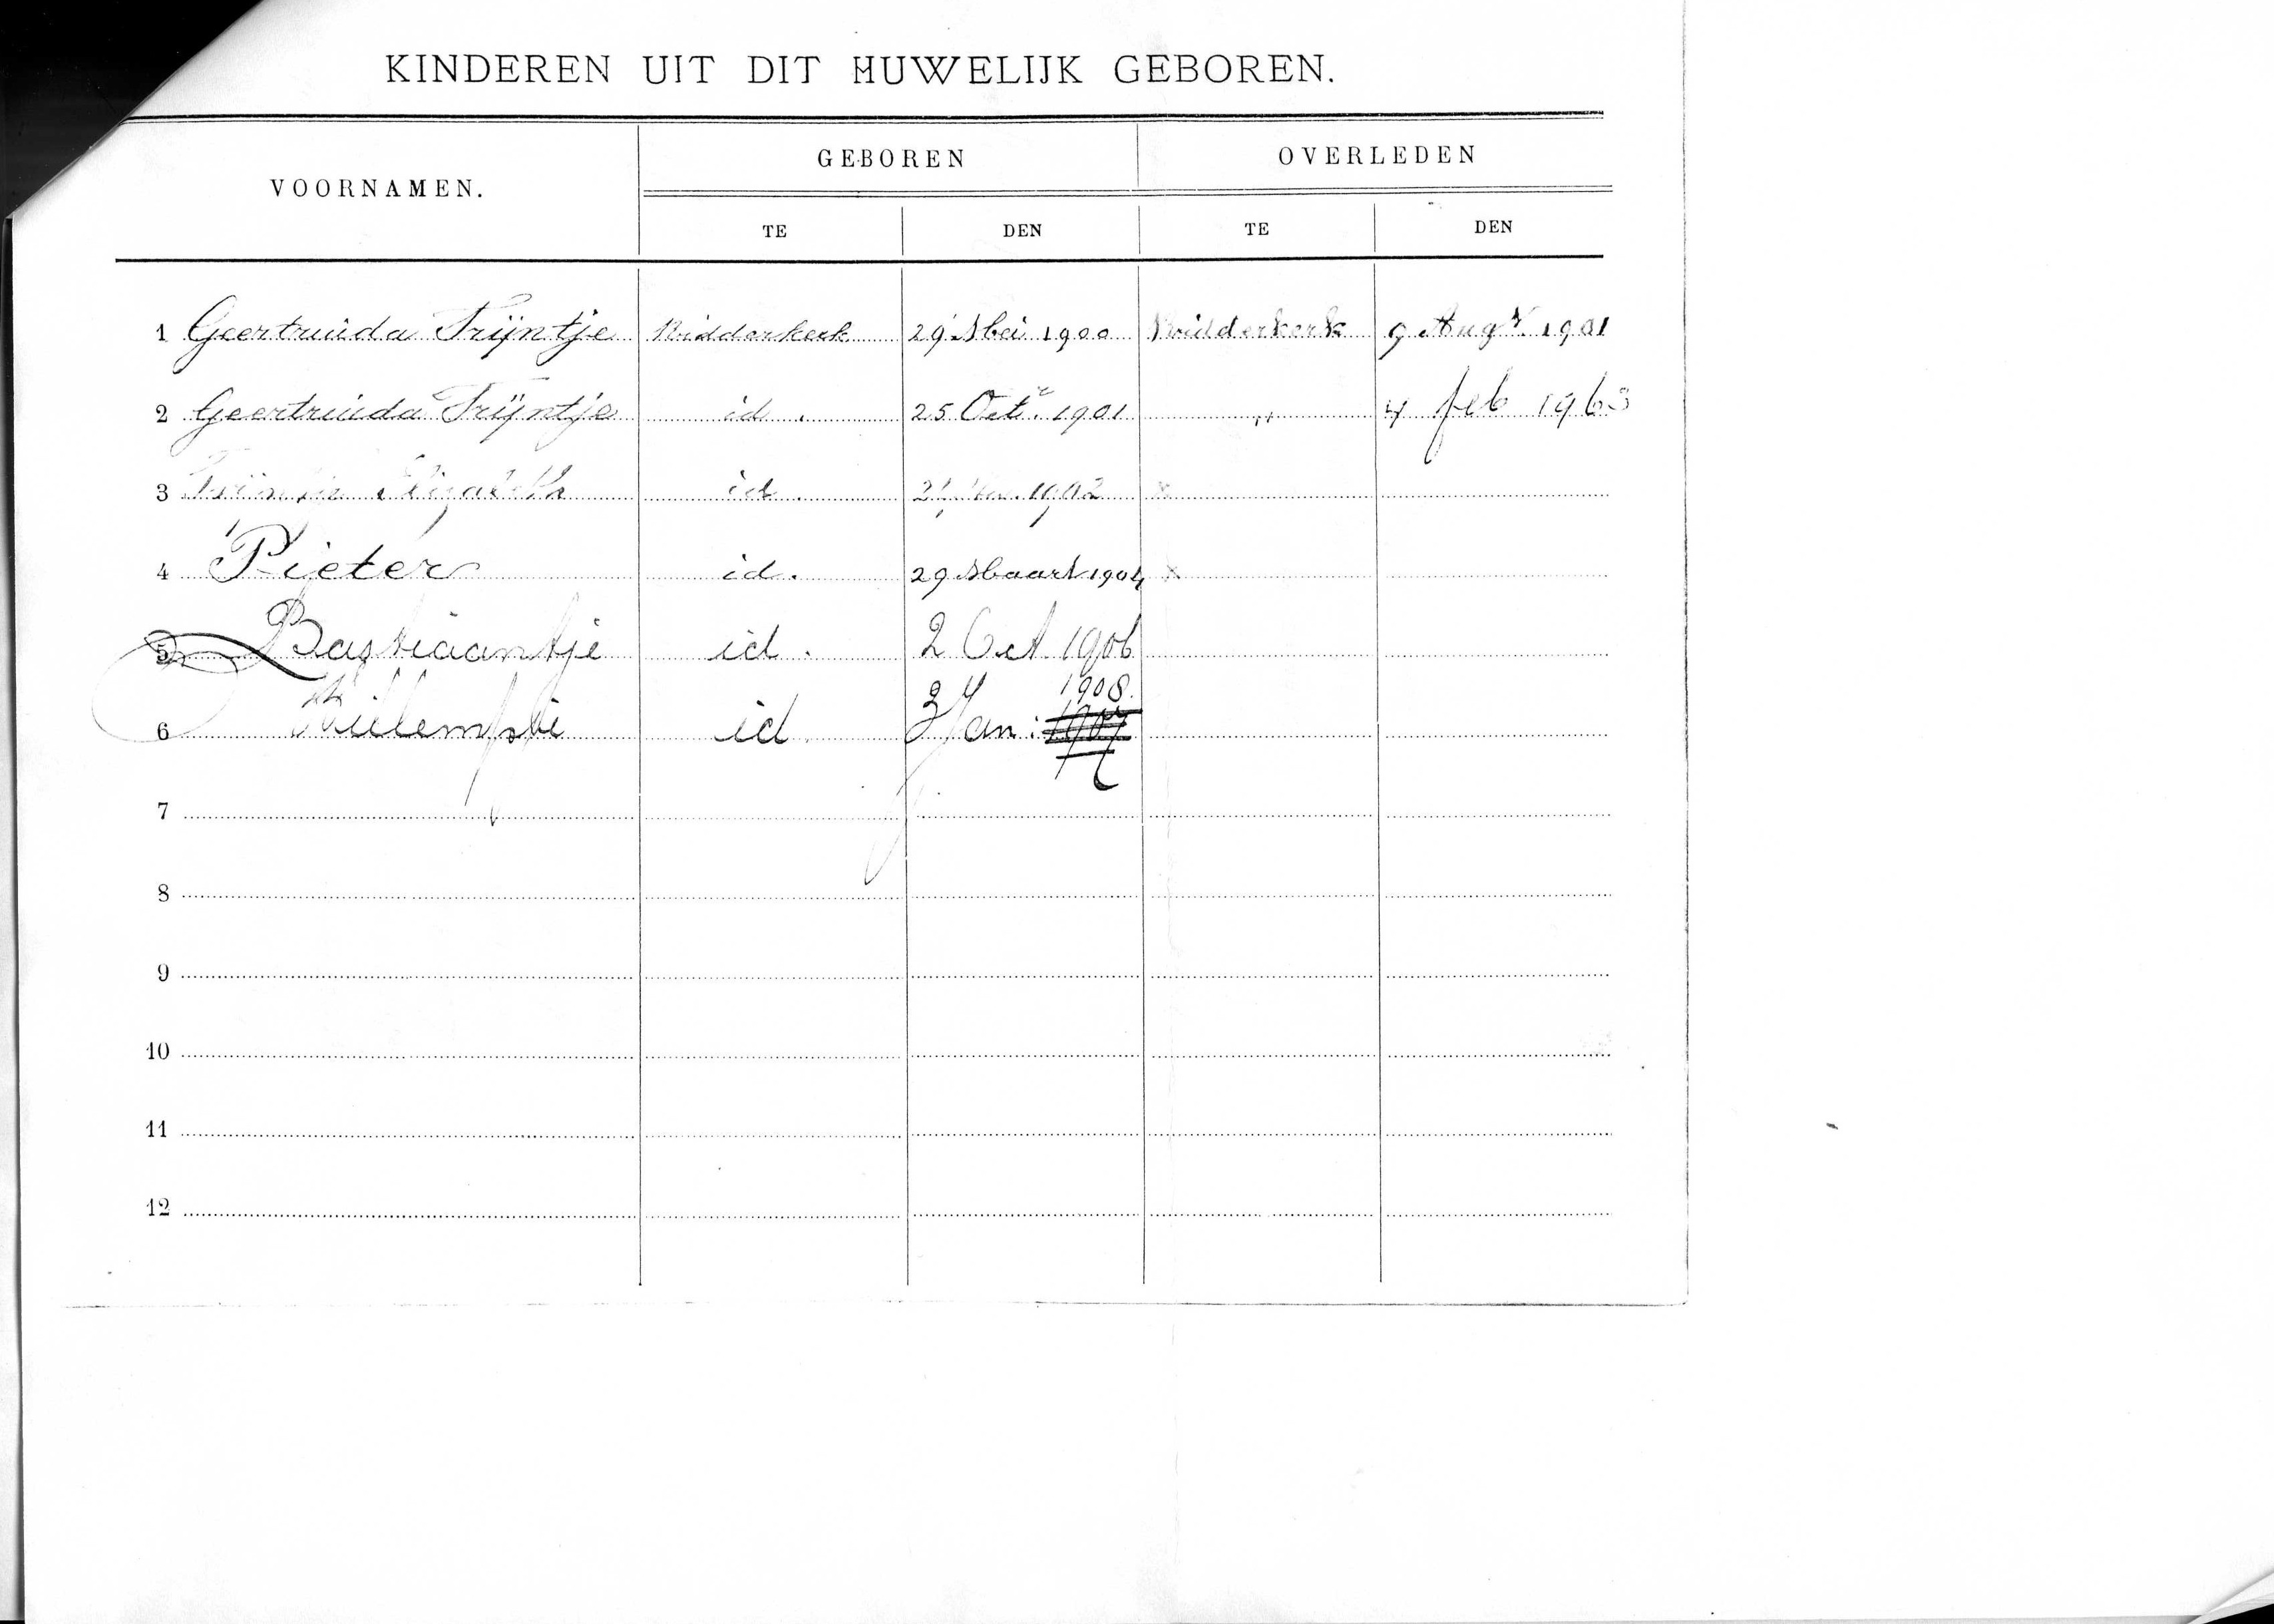 KINDEREN UIT DIT HUWELIJK GEBOREN.
VOORNAMEN. GEBOREN OVERLEDEN
TE DEN TE DEN
1 Geertruida Trijntje Ridderkerk 29 Mei 1900 Ridderkerk 9 Aug 1901
2 Geertruida Trijntje id. 25 Oct. 1901 " 4 feb 1963
3 id. 1902 x
4 Pieter id. 29 Maart 1904 x
5 Bastiaantje id. 2 Oct 1906
1908.
6 Willempje id 3 Jan: 1907
7
8
9
10
11
12